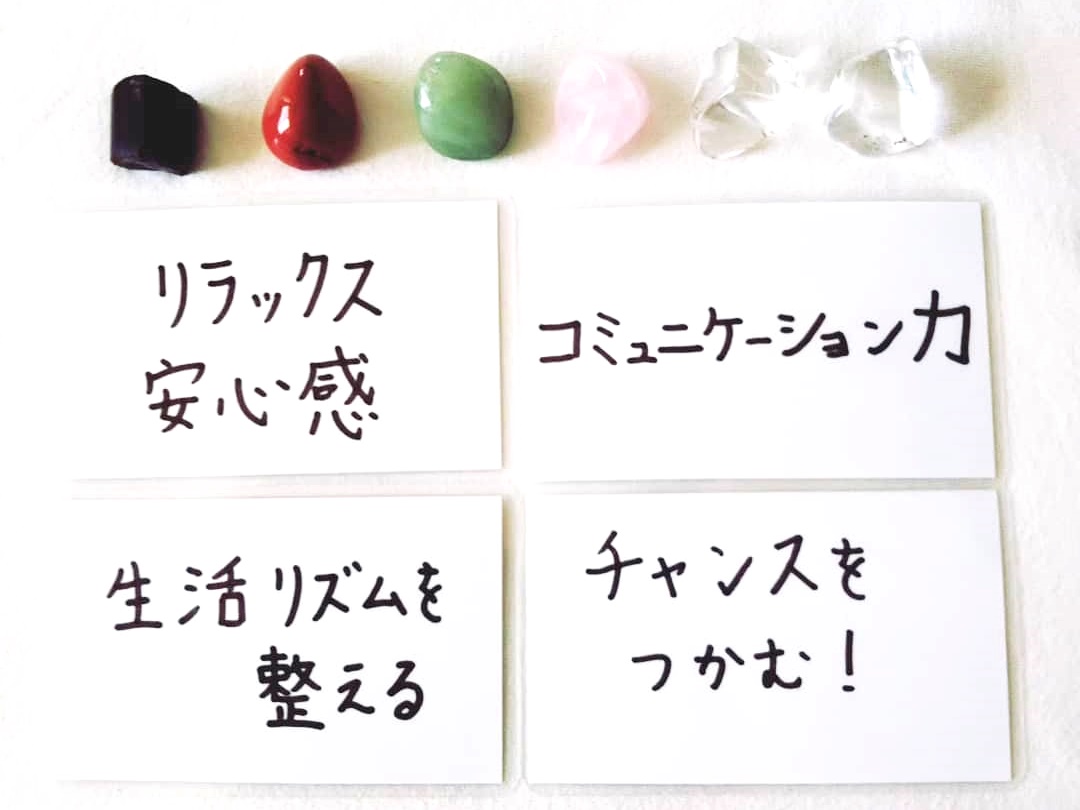 リラックス
安心感
コミュニケーション力
生活リズムを
整える
チャンスを
つかむ！